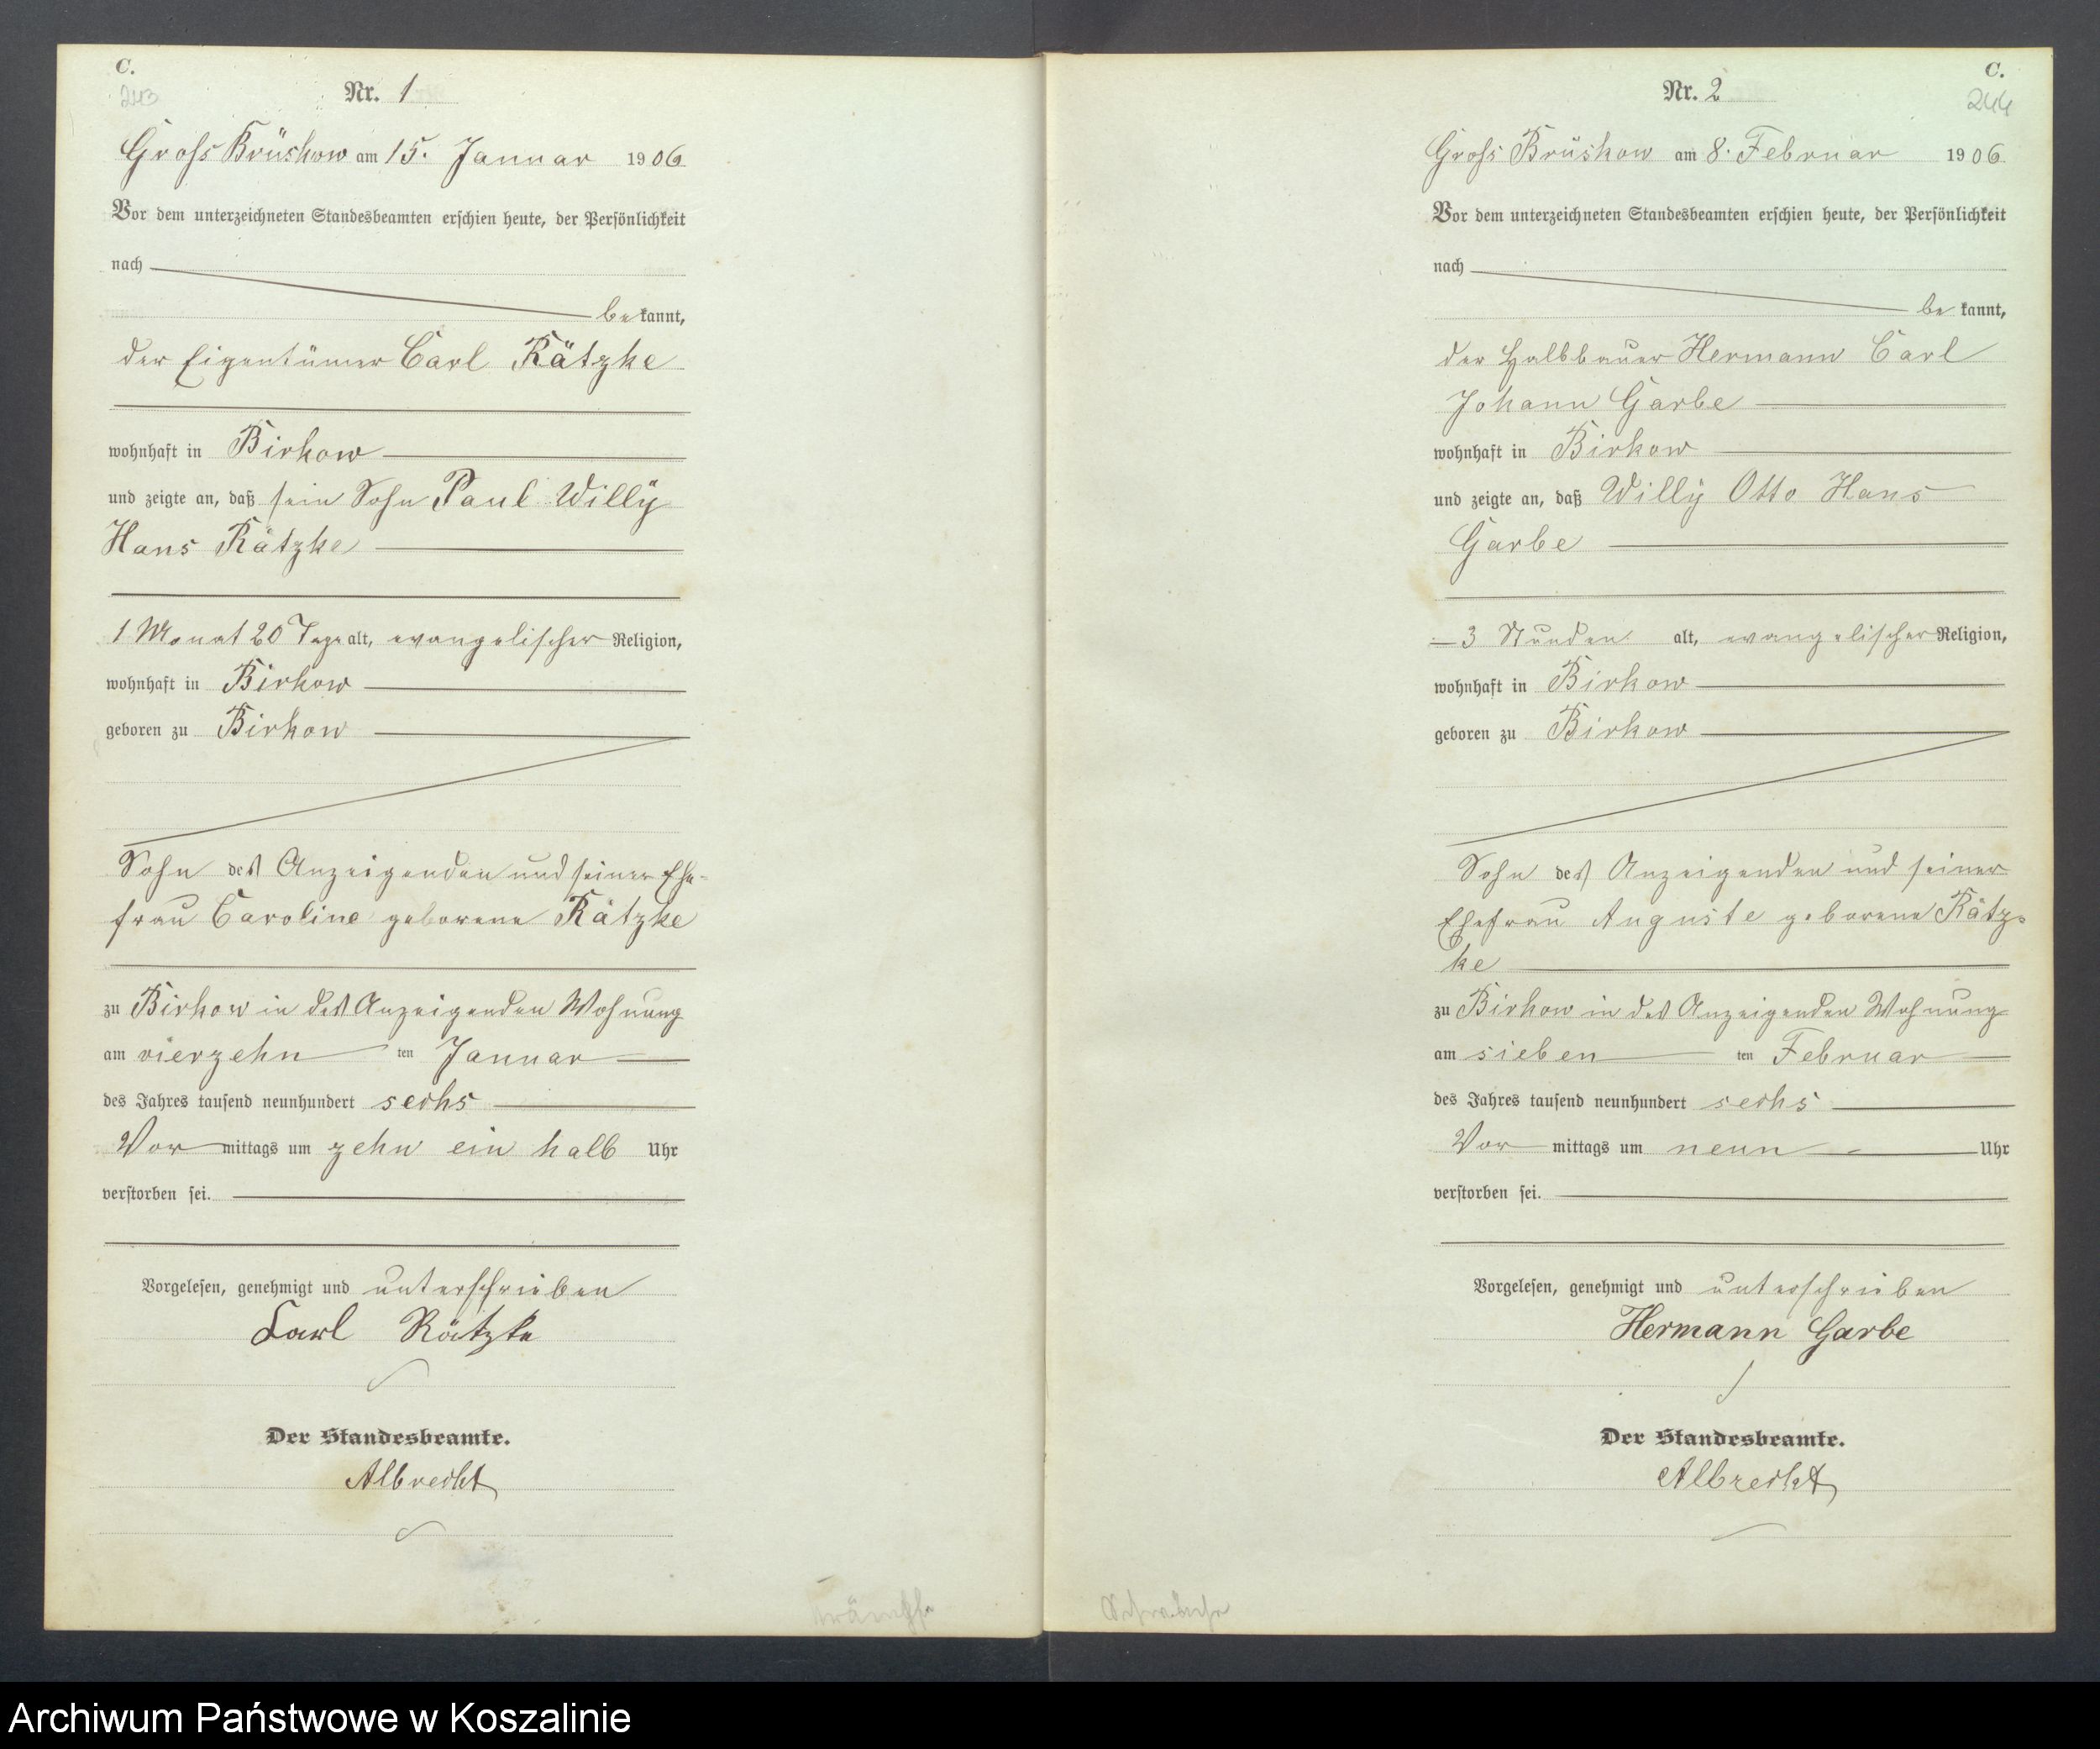 C.
243
Nr. 1
Gross Brüskow am 15. Januar 1906
Vor dem unterzeichneten Standesbeamten erschien heute, der Persönlichkeit
nach
be kannt,
der Eigentümer Carl Rätzke
wohnhaft in Birkow
und zeigte an, daß sein Sohn Paul Willy
Hans Rätzke
1 Monat 20 Tage alt, evangelischer Religion,
wohnhaft in Birkow
geboren zu Birkow
Sohn des Anzeigenden und seiner Ehe-
frau Caroline geborene Rätzke
zu Birkow in des Anzeigenden Wohnung
am vierzehn ten Januar
des Jahres tausend neunhundert sechs
Vor mittags um zehn ein halb Uhr
verstorben sei.
Vorgelesen, genehmigt und unterschrieben
Carl Rätzke
Der Standesbeamte.
Albrecht
C.
244
Nr. 2
Gross Brüskow am 8. Februar 1906
Vor dem unterzeichneten Standesbeamten erschien heute, der Persönlichkeit
nach
be kannt,
der Halbbauer Hermann Carl
Johann Garbe
wohnhaft in Birkow
und zeigte an, daß Willy Otto Hans
Garbe
3 Stunden alt, evangelischer Religion,
wohnhaft in Birkow
geboren zu Birkow
Sohn des Anzeigenden und seiner
Ehefrau Auguste geborene Rätz-
ke
zu Birkow in des Anzeigenden Wohnung
am sieben ten Februar
des Jahres tausend neunhundert sechs
Vor mittags um neun Uhr
verstorben sei.
Vorgelesen, genehmigt und unterschrieben
Hermann Garbe
Der Standesbeamte.
Albrecht
Archiwum Państwowe w Koszalinie